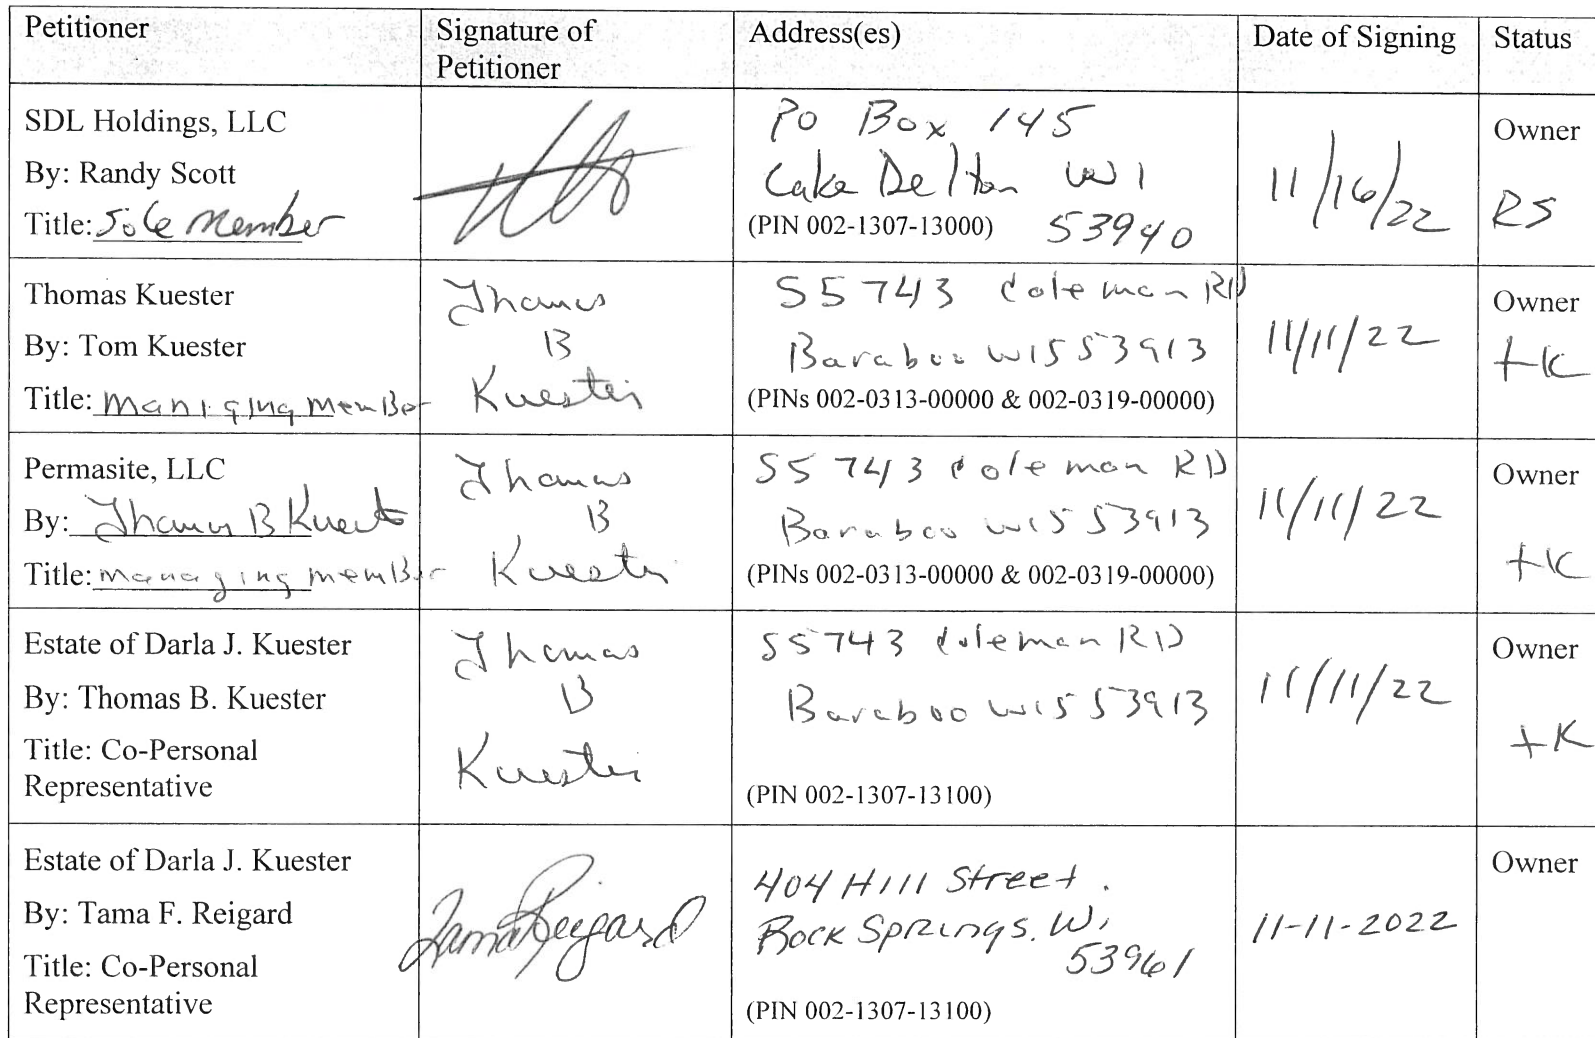 Petitioner
Signature of
Petitioner
Address(es)
Date of Signing
Status
SDL Holdings, LLC
By: Randy Scott
Title: Sole Member
PO Box 145
Lake Delton WI
(PIN 002-1307-13000) 53940
11/16/22
Owner
RS
Thomas Kuester
By: Tom Kuester
Title: managing member
Thomas
B
Kuester
S5743 Coleman RD
Baraboo WIS 53913
(PINs 002-0313-00000 & 002-0319-00000)
11/11/22
Owner
TK
Permasite, LLC
By: Thomas B Kuester
Title: managing member
Thomas
B
Kuester
S5743 Coleman RD
Baraboo WIS 53913
(PINs 002-0313-00000 & 002-0319-00000)
11/11/22
Owner
TK
Estate of Darla J. Kuester
By: Thomas B. Kuester
Title: Co-Personal
Representative
Thomas
B
Kuester
S5743 Coleman RD
Baraboo WIS 53913
(PIN 002-1307-13100)
11/11/22
Owner
TK
Estate of Darla J. Kuester
By: Tama F. Reigard
Title: Co-Personal
Representative
Tama F Reigard
404 Hill Street.
Rock Springs, WI
53961
(PIN 002-1307-13100)
11-11-2022
Owner